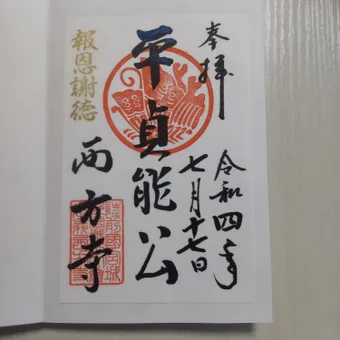 奉拝
令和四年
七月十七日
平貞能公
報恩謝徳
西方寺